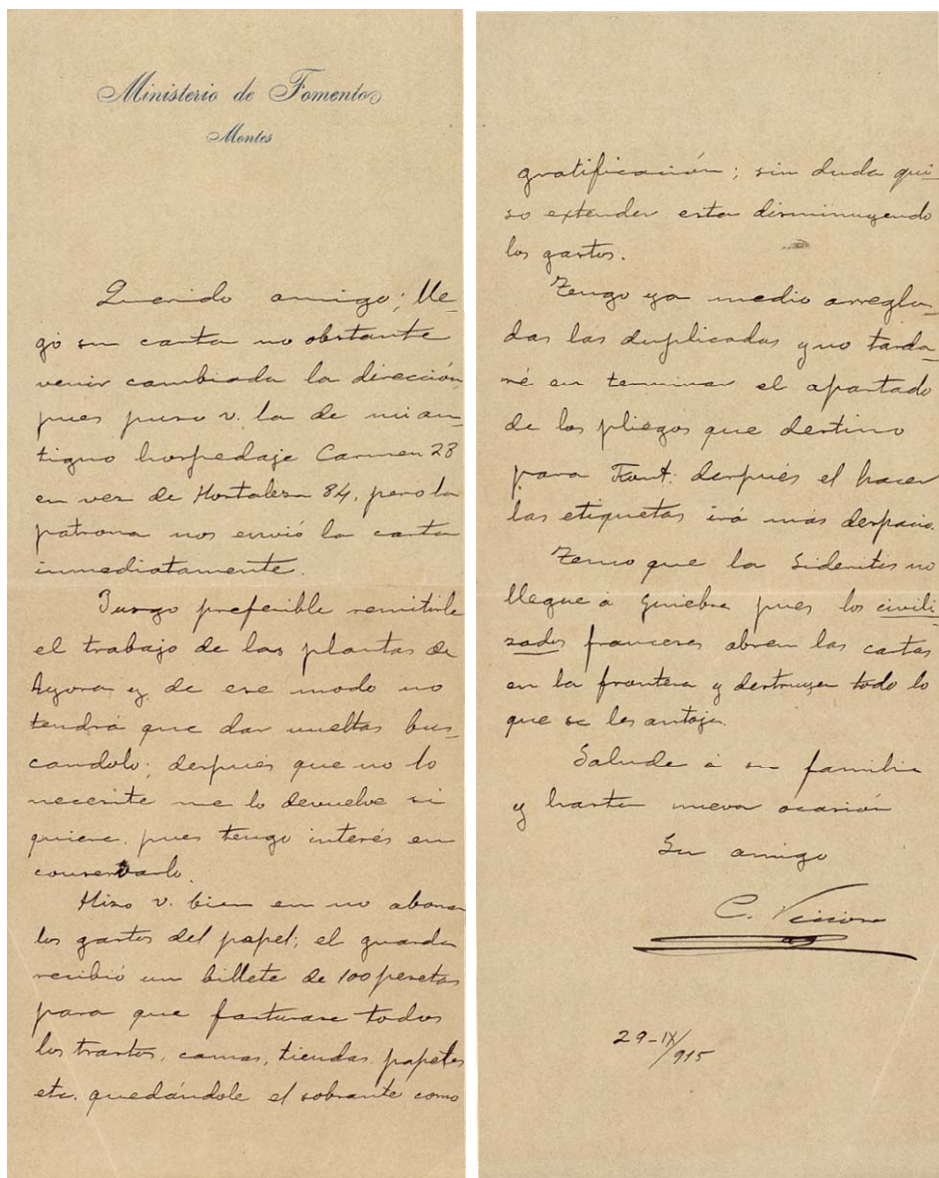 Ministerio de Fomento
Montes
Querido amigo; lle
gó su carta no obstante
venir cambiada la dirección
pues puso v. la de mi an
tiguo hospedaje Carmen 28
en vez de Hortaleza 84, pero la
patrona nos envió la carta
inmediatamente.
Juzgo preferible remitirle
el trabajo de las plantas de
Ayora y de ese modo no
tendrá que dar vueltas bus_
candolo; después que no lo
necesite me lo devuelve si
quiere, pues tengo interés en
conservarlo.
Hizo v. bien en no abonar
los gastos del papel; el guarda
recibió un billete de 100 pesetas
para que facturase todos
los trastos, camas, tiendas, papeles
etc. quedándole el sobrante como
gratificación; sin duda qui_
so extender esta disminuyendo
los gastos.
Tengo ya medio arregla_
das las duplicadas y no tarda_
ré en terminar el apartado
de los pliegos que destino
para Font: después el hacer
las etiquetas irá más despacio.
Temo que la Sideritis no
llegue a Ginebra pues los civili_
zados franceses abren las cartas
en la frontera y destruyen todo lo
que se les antoja.
Salude á su familia
y hasta nueva ocasión
Su amigo
C. Vicioso
29-IX/915